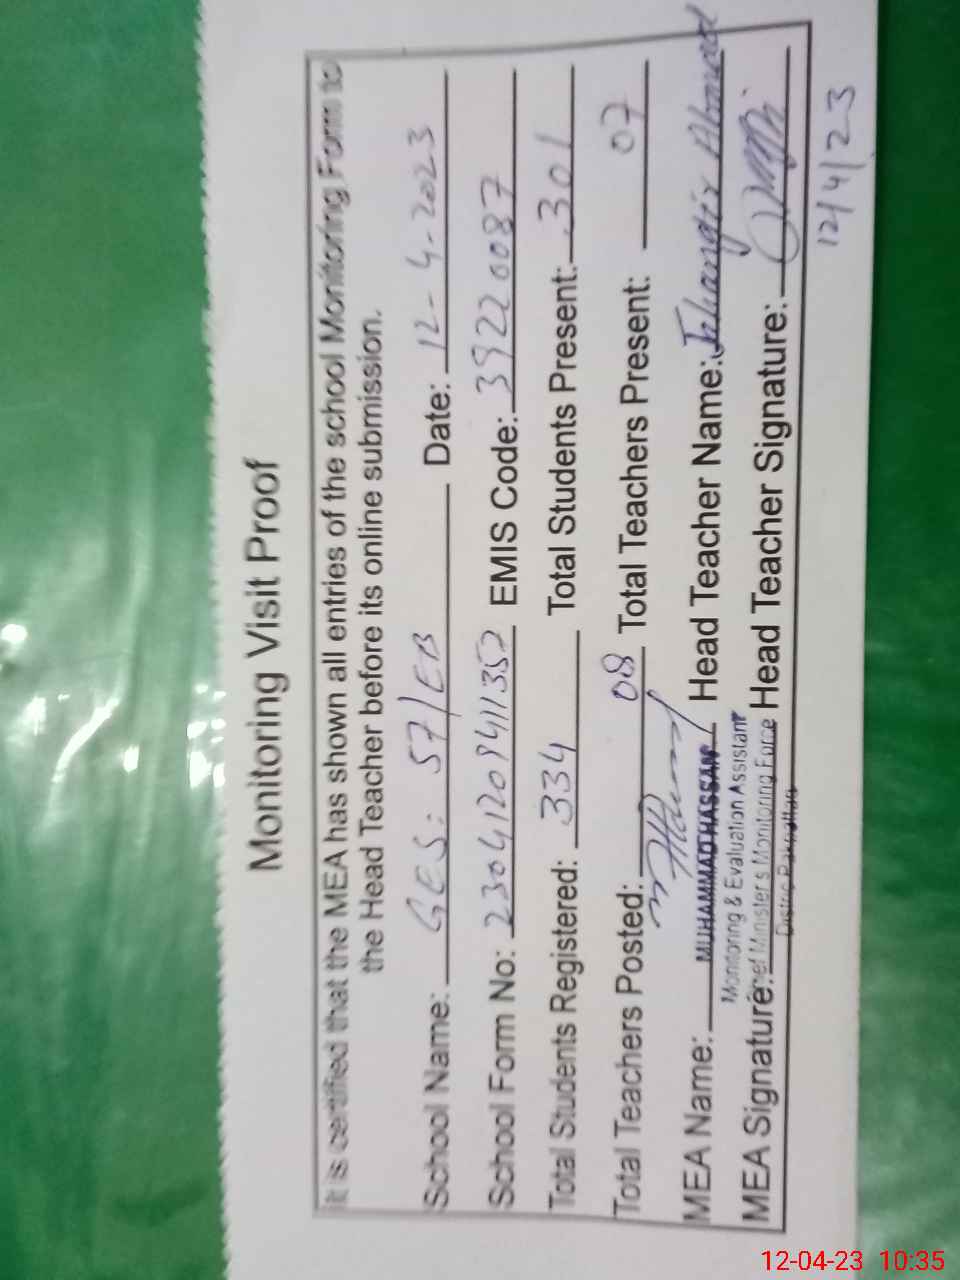 Monitoring Visit Proof
It is certified that the MEA has shown all entries of the school Monitoring Form to
the Head Teacher before its online submission.
School Name: GES: 57/EB Date: 12-4-2023
School Form No: 23041209411352 EMIS Code: 39220087
Total Students Registered: 334 Total Students Present: 301
Total Teachers Posted: 08 Total Teachers Present: 07
MEA Name: MUHAMMAD HASSAN Head Teacher Name: Jahangir Ahmad
Monitoring & Evaluation Assistant
MEA Signature: Chief Minister's Monitoring Force Head Teacher Signature:
District Pakpattan
12/4/23
12-04-23 10:35